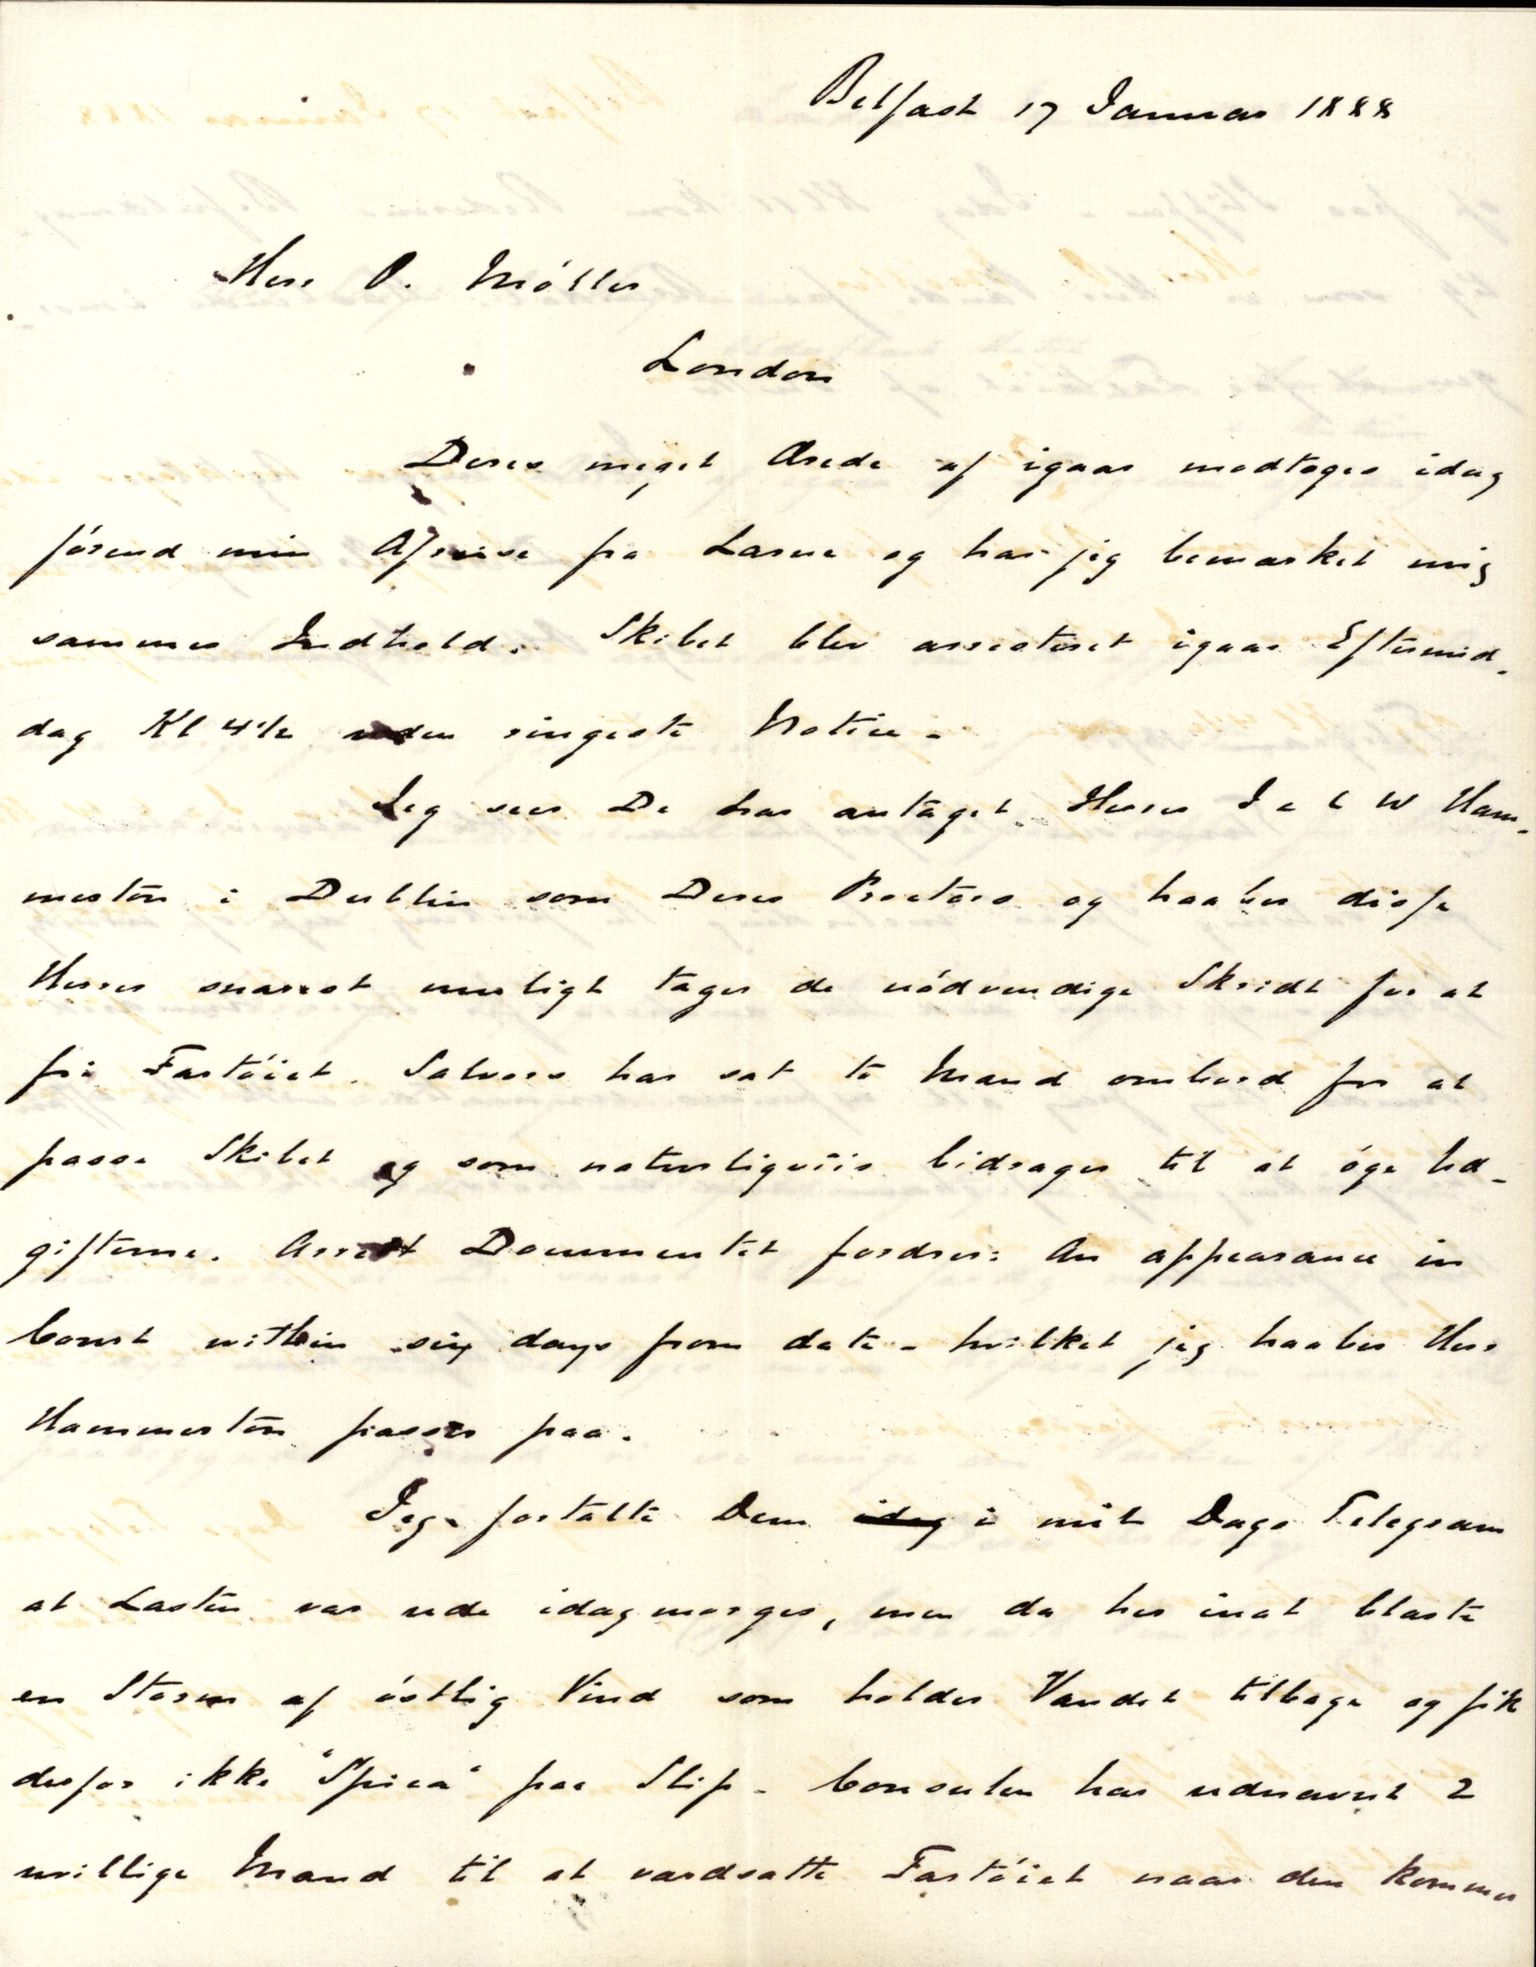 Belfast 17 Januar 1888
Herr O. Møller
London
Deres meget Ærede af igaar modtoges idag
førend min Afreise fra Larne og har jeg bemærket mig
sammes Indhold. Skibet blev arresteret igaar Eftermid-
dag Kl 4½ uden ringeste Notice.
Jeg seer De har antaget Herrer J & W Ham-
merton i Dublin som Deres Proctors og haaber disse
Herrer snarest muligt tager de nödvendige Skridt for at
fri Fartöiet. Salvors har sat to Mand ombord for at
passe Skibet og som naturligviis bidrager til at öge Ud-
gifterne. Arrest Documentet fordrer: An appearance in
Court within six days from date - hvilket jeg haaber Herr
Hammerton passer paa.
Jeg fortalte Dem idag i mit Dags Telegram
at Lasten var ude idagmorges, men da her inat blæste
en Storm af östlig Vind som holder Vandet tilbage og fik
derfor ikke "Spica" paa Slip. Consulen har udnævnt 2
uvillige Mænd til at værdsætte Fartöiet naar den kommer